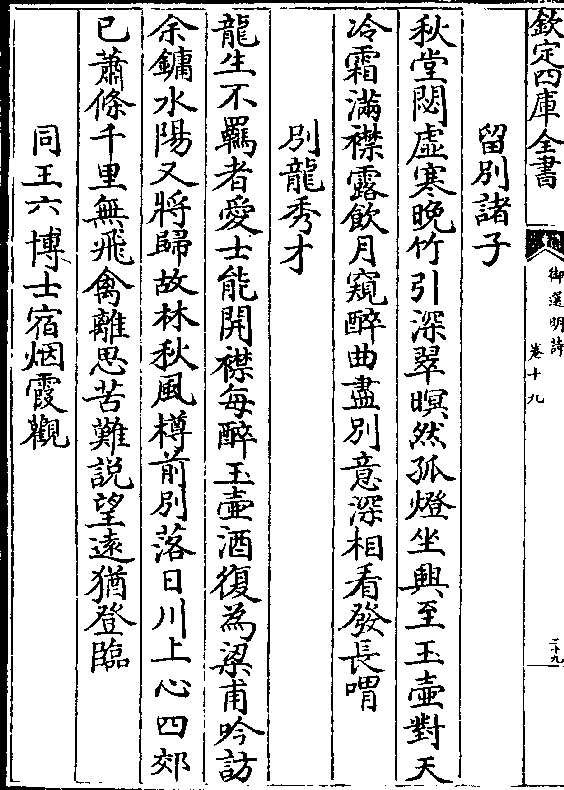 欽定四庫全書
御選明詩
卷十九
二十九
留別諸子
秋堂閟虛寒晚竹引深翠暝然孤燈坐興至玉壺對天
冷霜滿襟露飲月窺醉曲盡別意深相看發長喟
別龍秀才
龍生不羈者愛士能開襟每醉玉壺酒復為梁甫吟訪
余鏞水陽又將歸故林秋風樽前別落日川上心四郊
已蕭條千里無飛禽離思苦難説望遠猶登臨
同王六博士宿烟霞觀